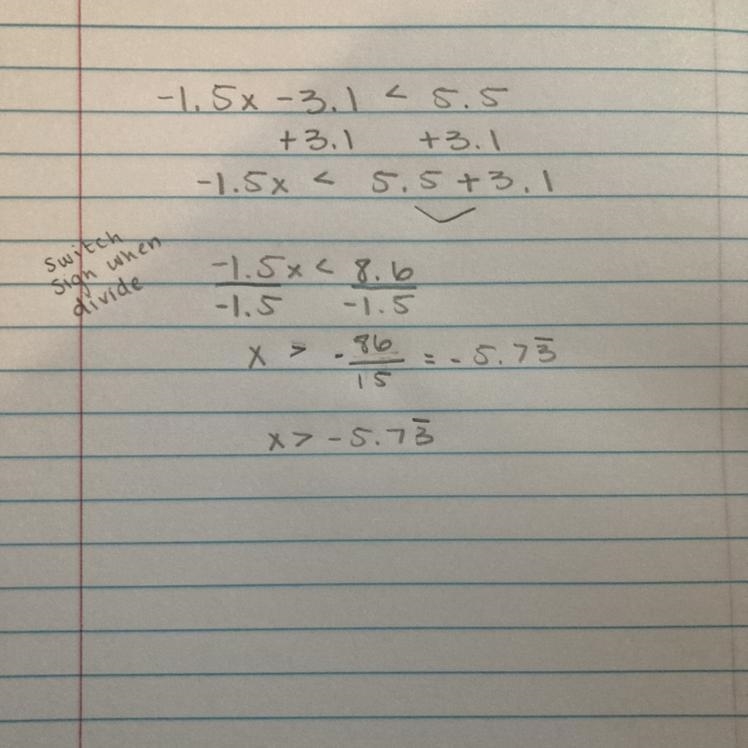 -1.5x -3.1 < 5.5
+3.1 +3.1
-1.5x < 5.5 +3.1
switch
sign when
divide
-1.5x < 8.6
-1.5 -1.5
x > -86/15 = -5.73̅
x > -5.73̅